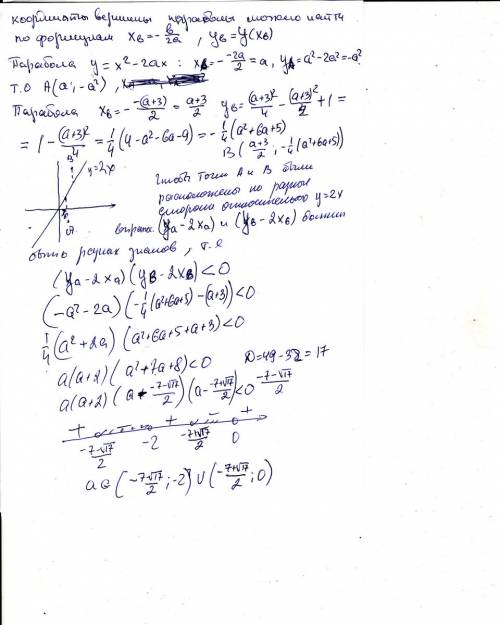 координаты вершины параболы можно найти
по формулам x_в = -в/2a , y_в = y(x_в)
Парабола y = x² - 2ax : x_в = - -2a/2 = a, y_A = a² - 2a² = -a²
т.о A(a; -a²),
Парабола x_в = -(-(a+3))/2 = (a+3)/2 y_в = (a+3)²/4 - (a+3)²/2 + 1 =
= 1 - (a+3)²/4 = 1/4 (4 - a² - 6a - 9) = -1/4 (a² + 6a + 5)
B((a+3)/2; -1/4(a² + 6a + 5))
y = 2x
чтобы точки A и B были
расположены по разные
стороны относительно y = 2x
(y_a - 2x_a) и (y_в - 2x_в) должны
быть разных знаков, т.е
(y_a - 2x_a)(y_B - 2x_B) < 0
(-a² - 2a)(-1/4(a² + 6a + 5) - (a+3)) < 0
1/4 (a² + 2a)(a² + 6a + 5 + a + 3) < 0
a(a+2)(a² + 7a + 8) < 0 D = 49 - 32 = 17
a(a+2)(a - (-7-√17)/2)(a - (-7+√17)/2) < 0 (-7-√17)/2
+ - + - +
(-7-√17)/2 -2 (-7+√17)/2 0
a ∈ ((-7-√17)/2; -2) ∪ ((-7+√17)/2; 0)